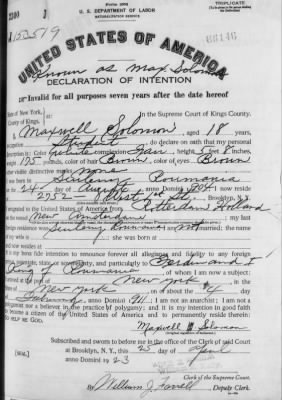 TRIPLICATE
U. S. DEPARTMENT OF LABOR
NATURALIZATION SERVICE
UNITED STATES OF AMERICA
Known as Max Solomon
DECLARATION OF INTENTION
Invalid for all purposes seven years after the date hereof
State of New York,
County of Kings. In the Supreme Court of Kings County.
Maxwell Solomon, aged 18 years,
occupation Student, do declare on oath that my personal
description is: Color white, complexion Fair, height 5 feet inches,
weight 195 pounds, color of hair Brown, color of eyes Brown
other visible distinctive marks none
Roumania
on the day of August, anno Domini I now reside
at 2752 West St., Brooklyn, N.Y.
emigrated to the United States of America from Rotterdam Holland
on the vessel New Amsterdam; my last
foreign residence was
wife is; she was born at
and now reside at
It is my bona fide intention to renounce forever all allegiance and fidelity to any foreign
prince, potentate, state, or sovereignty, and particularly to Ferdinand
King of Roumania, of whom I am now a subject;
arrived at the port of New York, in the
State of New York, on or about the 4 day
of, anno Domini; I am not an anarchist; I am not a
polygamist nor a believer in the practice of polygamy; and it is my intention in good faith
to become a citizen of the United States of America and to permanently reside therein:
SO HELP ME GOD.
Maxwell Solomon
Subscribed and sworn to before me in the office of the Clerk of said Court
at Brooklyn, N. Y., this 25 day of April
anno Domini 1923
[SEAL]
Clerk of the Supreme Court.
By William J. Farrell, Deputy Clerk.